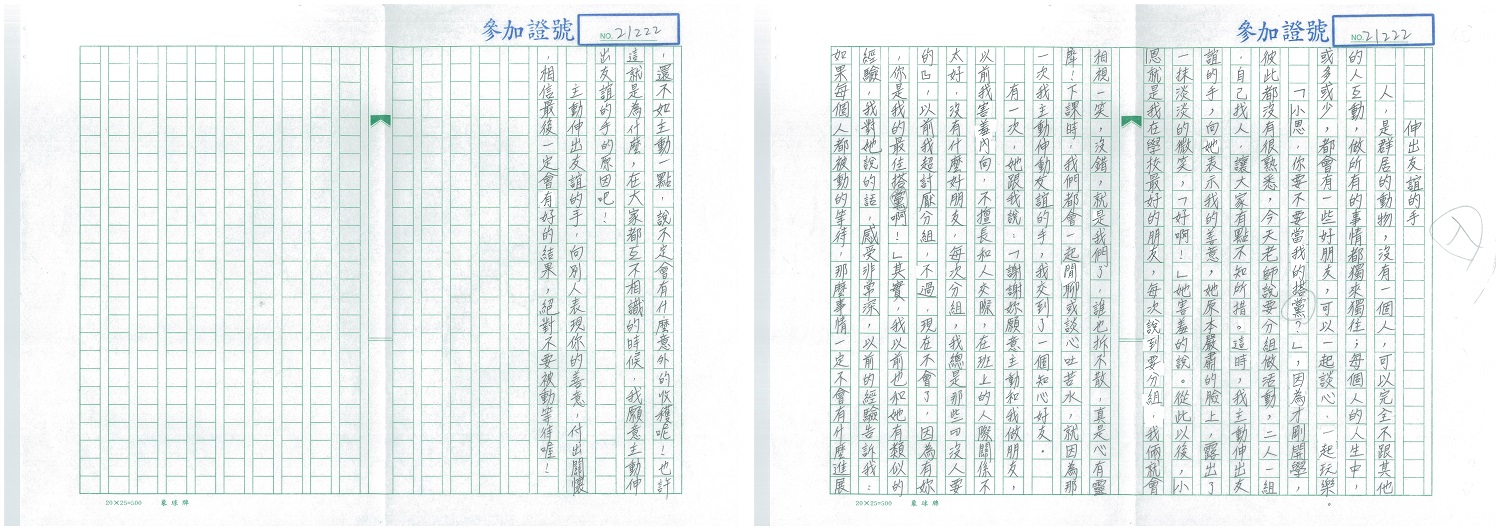 參加證號 NO. 21222
伸出友誼的手
人，是群居的動物，沒有一個人，可以完全不跟其他
的人互動，做所有的事情都獨來獨往；每個人的人生中，
或多或少，都會有一些好朋友，可以一起談心、一起玩樂。
「小思，你要不要當我的搭黨？」，因為才剛開學，
彼此都沒有很熟悉，今天老師說要分組做活動，二人一組
，自己找人，讓大家有點不知所措。這時，我主動伸出友
誼的手，向她表示我的善意，她原本嚴肅的臉上，露出了
一抹淡淡的微笑，「好啊！」她害羞的說。從此以後，小
思就是我在學校最好的朋友，每次說到要分組，我倆就會
相視一笑，沒錯，就是我們了，誰也拆不散，真是心有靈
犀！下課時，我們都會一起閒聊或談心吐苦水，就因為那
一次我主動伸動友誼的手，我交到了一個知心好友。
有一次，她跟我說：「謝謝妳願意主動和我做朋友，
以前我害羞內向，不擅長和人交際，在班上的人際關係不
太好，沒有什麼好朋友，每次分組，我總是那些叩沒人要
的口，以前我超討厭分組，不過，現在不會了，因為有妳
，你是我的最佳搭黨啊！」其實，我以前也和她有類似的
經驗，我對她說的話，感受非常深，以前的經驗告訴我：
如果每個人都被動的等待，那麼事情一定不會有什麼進展
20×25=500 象球牌
參加證號 NO. 21222
，還不如主動一點，說不定會有什麼意外的收穫呢！也許
這就是為什麼，在大家都互不相識的時候，我願意主動伸
出友誼的手的原因吧！
主動伸出友誼的手，向別人表現你的善意，付出關懷
，相信最後一定會有好的結果，絕對不要被動等待喔！
20×25=500 象球牌